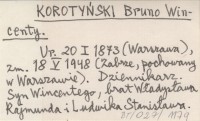 KOROTYŃSKI Bruno Win-
centy.
Ur. 20 I 1873 (Warszawa),
zm. 18 V 1948 (Zabrze, pochowany
w Warszawie). Dziennikarz.
Syn Wincentego, brat Władysława
Rajmunda i Ludwika Stanisława.